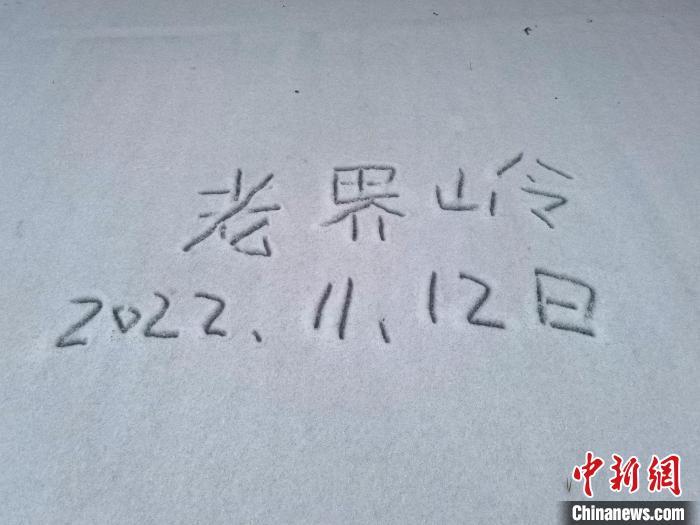 老界岭
2022、11、12日
中新网
Chinanews.com